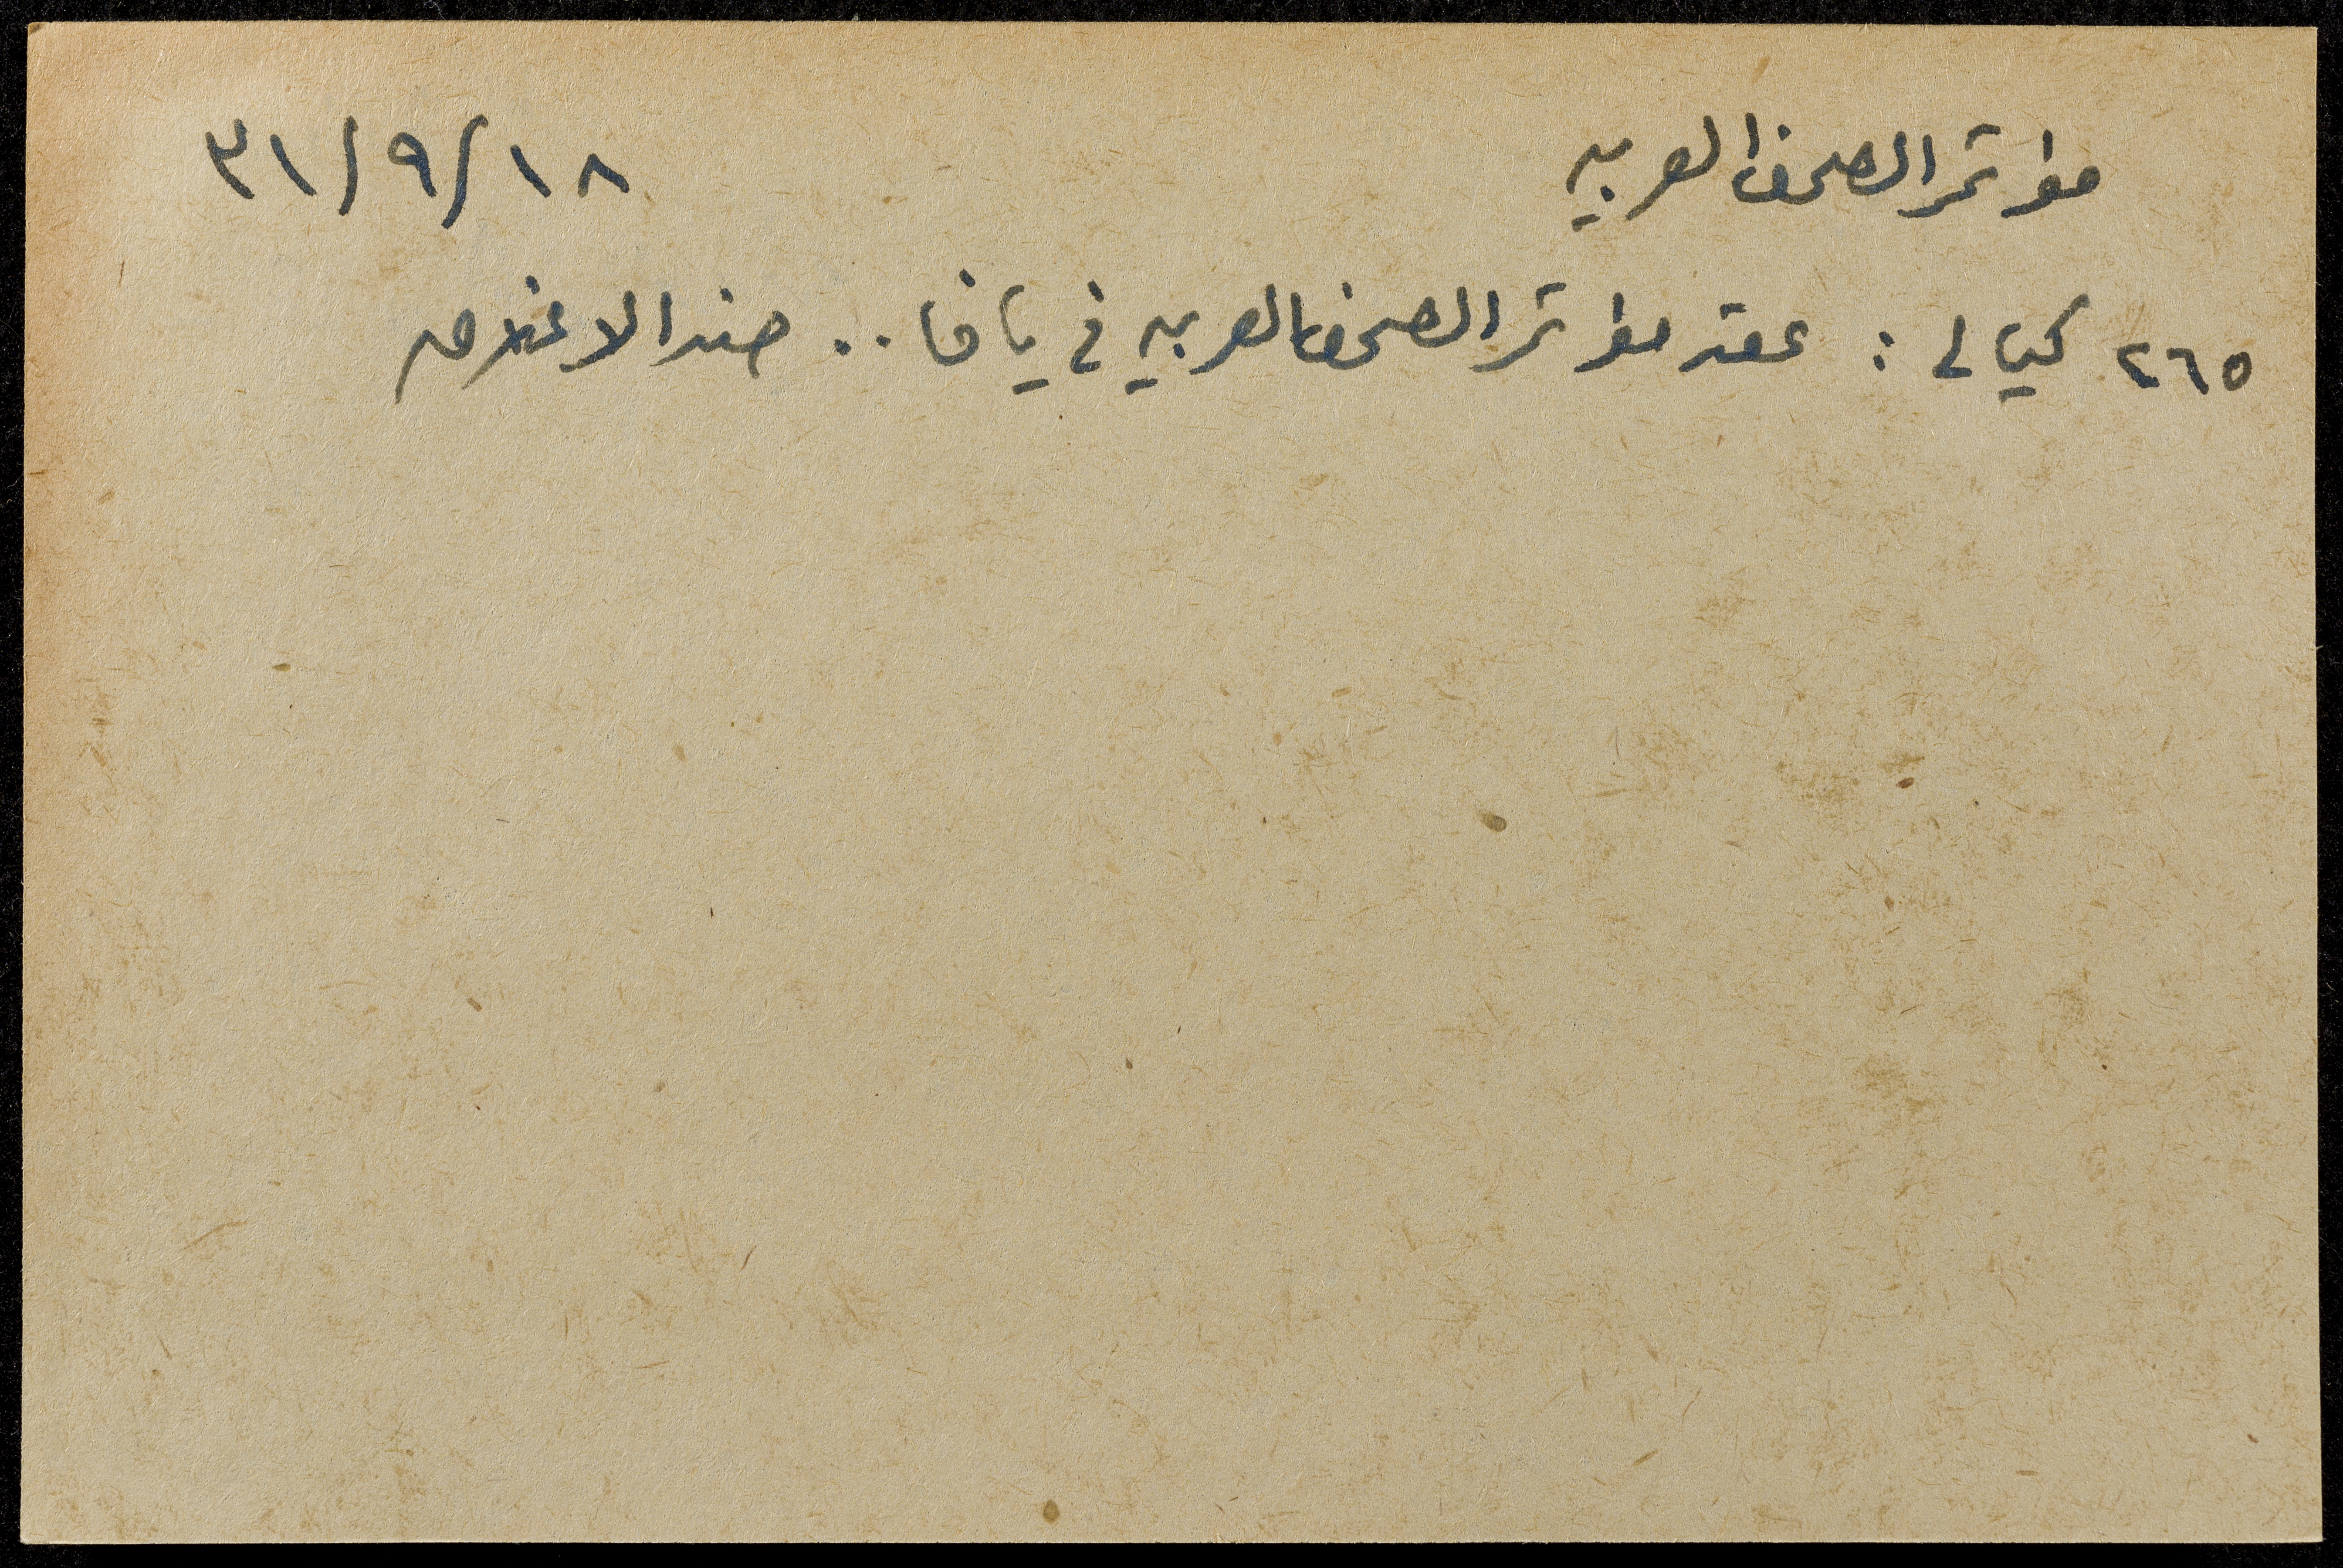 مؤتمر الصحف العربيه ١٨/٩/٣١
٢٦٥ كيالي : عقد مؤتمر الصحف العربيه في يافا .. ضد الاغلاق